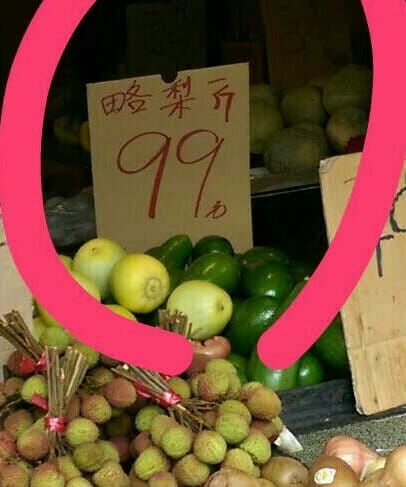 略梨斤
99
元